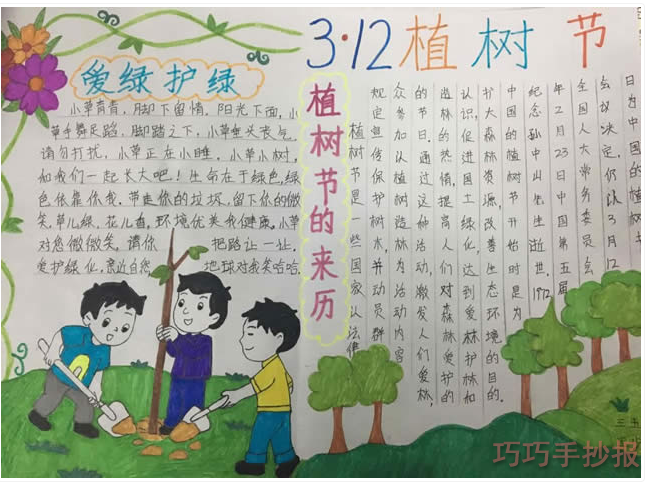 3·12植树节
爱绿护绿
小草青青,脚下留情.阳光下面,小
草手舞足蹈,脚踏之下,小草垂头丧气.
请勿打扰,小草正在小睡.小草小树,
和我们一起长大吧!生命在于绿色,绿
色依靠你我.带走你的垃圾.留下你的微
笑.草儿绿.花儿香.环境优美我健康.小草
对您微微笑,请你把路让一让.
爱护绿化,亲近自然,地球对我笑哈哈.
植树节的来历
植树节是一些国家以法律
规定宣传保护树木,并动员群
众参加以植树造林为活动内容
的节日。通过这种活动,激发人们爱林,
造林的热情,提高人们对森林爱护的
认识,促进国土绿化,达到爱林护林和
扩大森林资源,改善生态环境的目的。
中国的植树节开始时是为
纪念孙中山先生逝世.1972
年2月23日中国第五届
全国人大常务委员会
会议决定,仍以3月12
日为中国的植树
三
巧巧手抄报